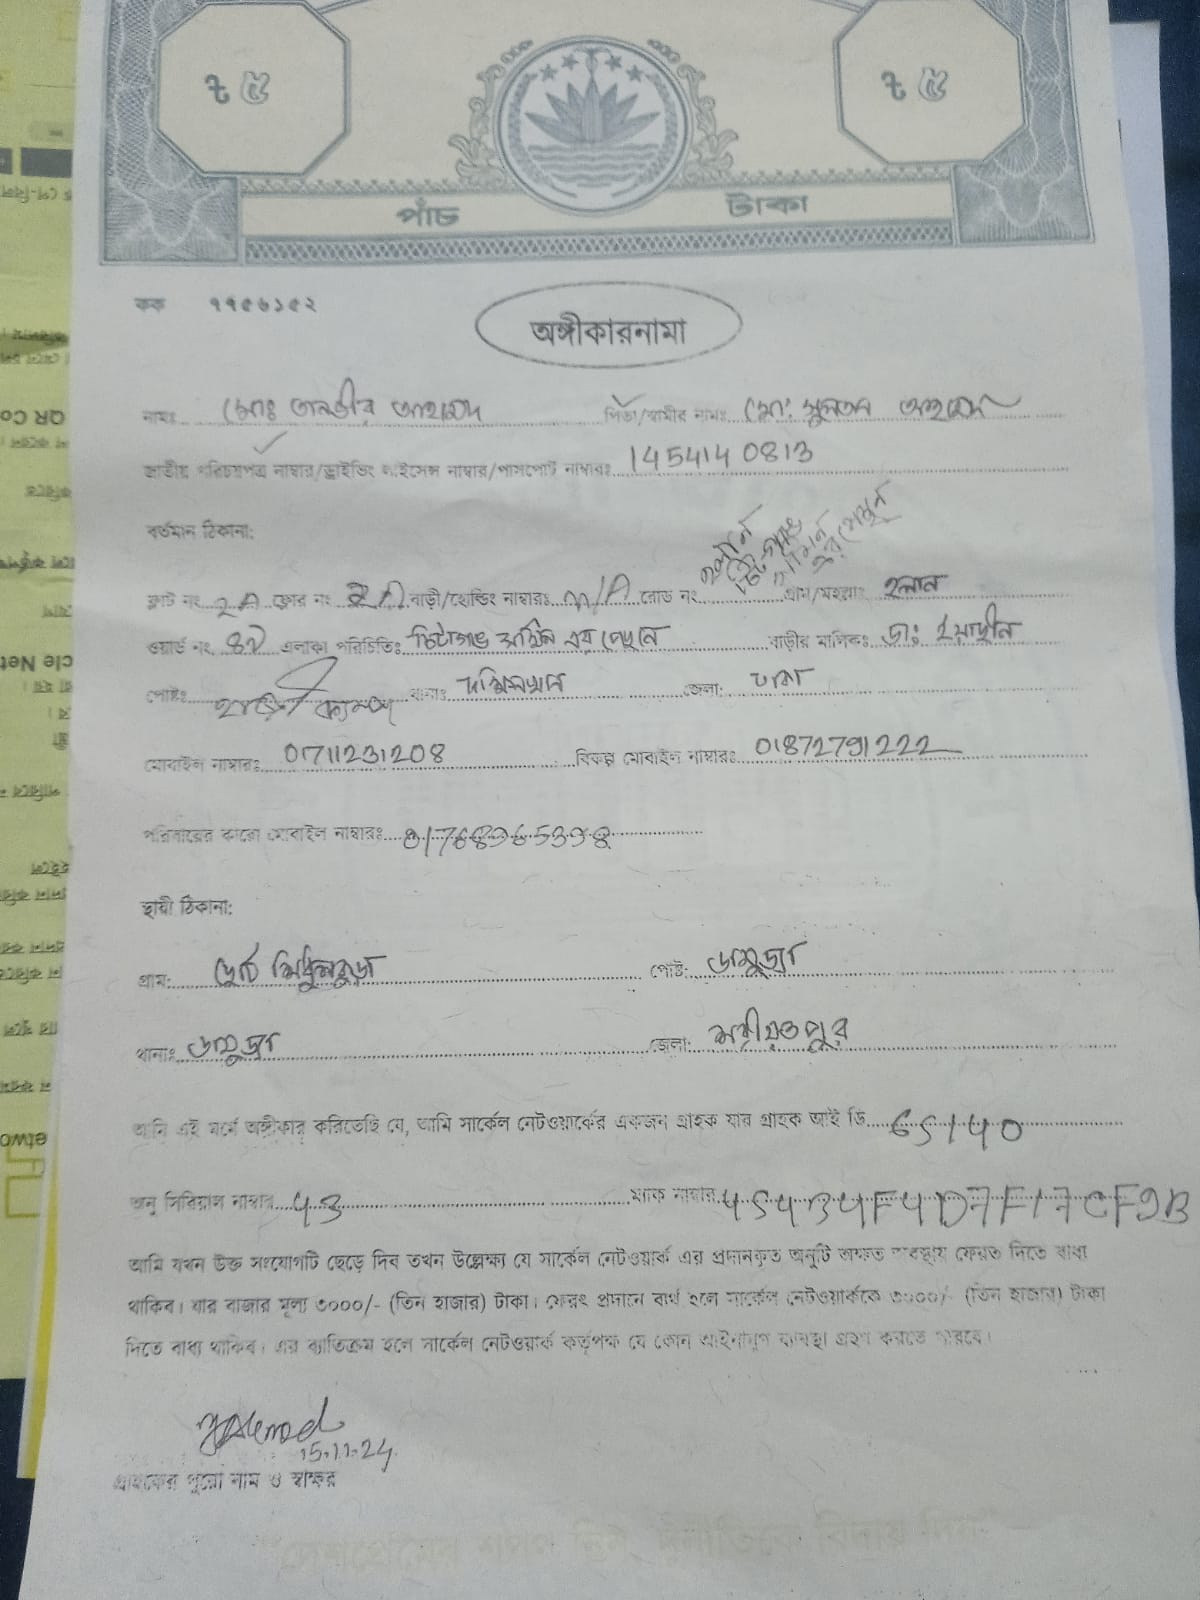 ৳ ৫ ৳ ৫
পাঁচ টাকা
কক ৭৭৫৬১৫২
অঙ্গীকারনামা
নামঃ মোঃ তানভীর আহমেদ পিতা/স্বামীর নামঃ মো: সুলতান আহমেদ
জাতীয় পরিচয়পত্র নাম্বার/ড্রাইভিং লাইসেন্স নাম্বার/পাসপোর্ট নাম্বারঃ 1454140813
বর্তমান ঠিকানা:
ফ্লাট নং 2A ফ্লোর নং বাড়ী/হোল্ডিং নাম্বারঃ N/A রোড নং গ্রাম/মহল্লাঃ হলান
ওয়ার্ড নং এলাকা পরিচিতিঃ চিটাগাঙ এর পেছনে বাড়ীর মালিকঃ ডাঃ
পোষ্টঃ হাজী ক্যাম্প থানাঃ দক্ষিনখান জেলা: ঢাকা
মোবাইল নাম্বারঃ 01711231208 বিকল্প মোবাইল নাম্বারঃ 01872791222
পরিবারের কারো মোবাইল নাম্বারঃ
স্থায়ী ঠিকানা:
গ্রাম: পোষ্ট: ডামুড্যা
থানাঃ ডামুড্যা জেলা: শরীয়তপুর
আমি এই মর্মে অঙ্গীকার করিতেছি যে, আমি সার্কেল নেটওয়ার্কের একজন গ্রাহক যার গ্রাহক আই ডি 65140
অনু সিরিয়াল নাম্বার 43 ম্যাক নাম্বার 454B4F4D7F17CF2B
আমি যখন উক্ত সংযোগটি ছেড়ে দিব তখন উল্লেক্ষ্য যে সার্কেল নেটওয়ার্ক এর প্রদানকৃত অনুটি অক্ষত অবস্থায় ফেরত দিতে বাধ্য
থাকিব। যার বাজার মূল্য ৩০০০/- (তিন হাজার) টাকা। ফেরৎ প্রদানে ব্যর্থ হলে সার্কেল নেটওয়ার্ককে ৩০০০/- (তিন হাজার) টাকা
দিতে বাধ্য থাকিব। এর ব্যতিক্রম হলে সার্কেল নেটওয়ার্ক কর্তৃপক্ষ যে কোন আইনানুগ ব্যবস্থা গ্রহণ করতে পারবে।
15.11.24
গ্রাহকের পুরো নাম ও স্বাক্ষর